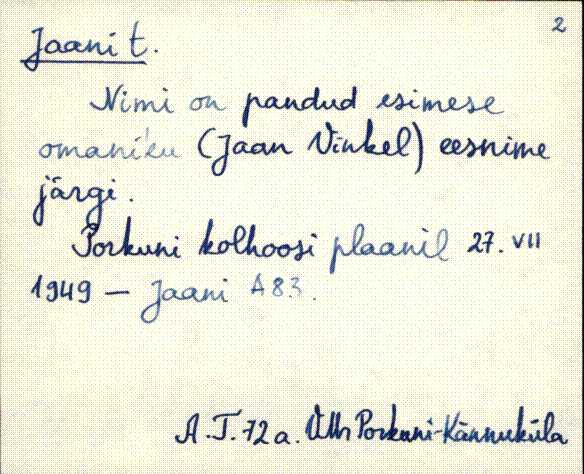 2
Jaani t.
Nimi on pandud esimese
omaniku (Jaan Vinkel) eesnime
järgi.
Porkuni kolhoosi plaanil 27. VII
1949 – Jaani A 83.
A. T. 72 a. VMr Porkuni-Kännuküla